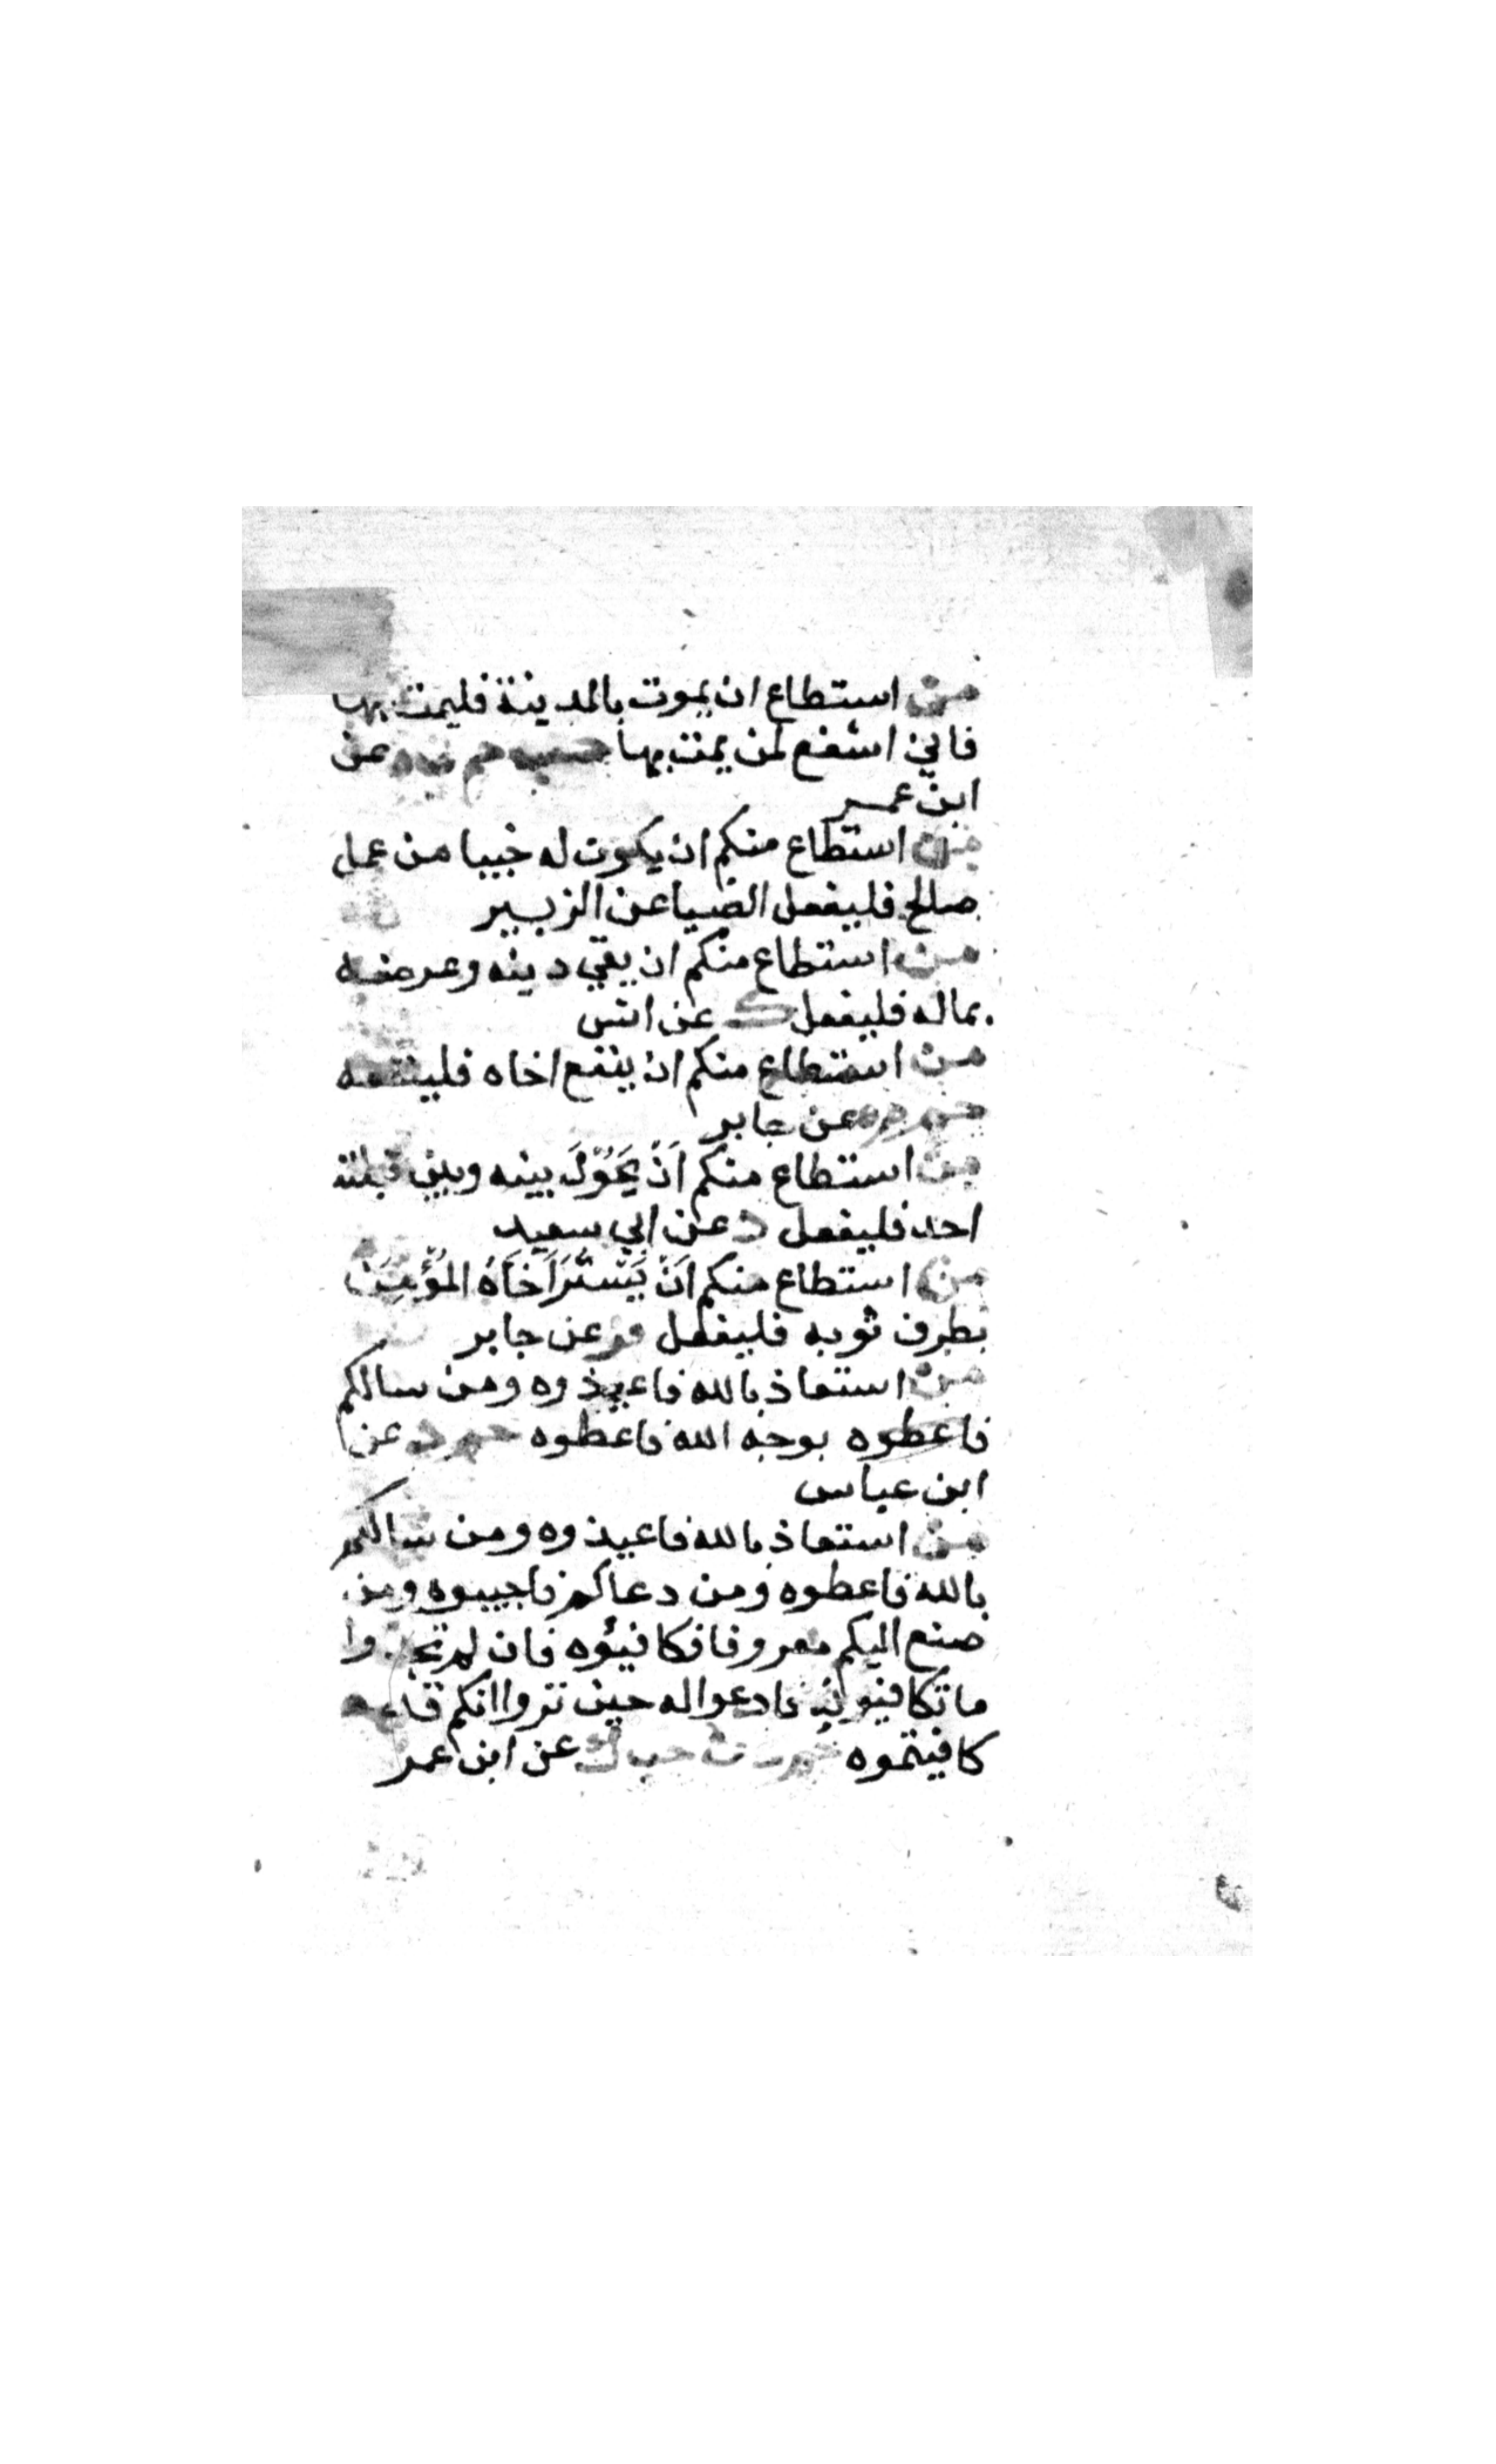 من استطاع ان يموت بالمدينة فليمت بها
فاني اشفع لمن يمت بها حم عن
ابن عمر
من استطاع منكم ان يكون له خبيا من عمل
صالح فليفعل الضيا عن الزبير
من استطاع منكم ان يقي دينه وعرضه
بماله فليفعل ك عن انس
من استطاع منكم ان ينفع اخاه فلينفعه
حم م ه عن جابر
من استطاع منكم اَنْ يَحُوْلَ بينه وبين قبلته
احد فليفعل د عن ابي سعيد
من استطاع منكم اَنْ يَسْتُرَ اَخَاهُ المُؤْمِنَ
بطرف ثوبه فليفعل فر عن جابر
من استعاذ بالله فاعيذوه ومن سالكم
فاعطوه بوجه الله فاعطوه حم د عن
ابن عباس
من استعاذ بالله فاعيذوه ومن سالكم
بالله فاعطوه ومن دعاكم فاجيبوه ومن
صنع اليكم معروفا فكافيئوه فان لم تجدوا
ما تكافيئونه فادعوا له حين تروا انكم قد
كافيتموه حم د ن حب ك عن ابن عمر